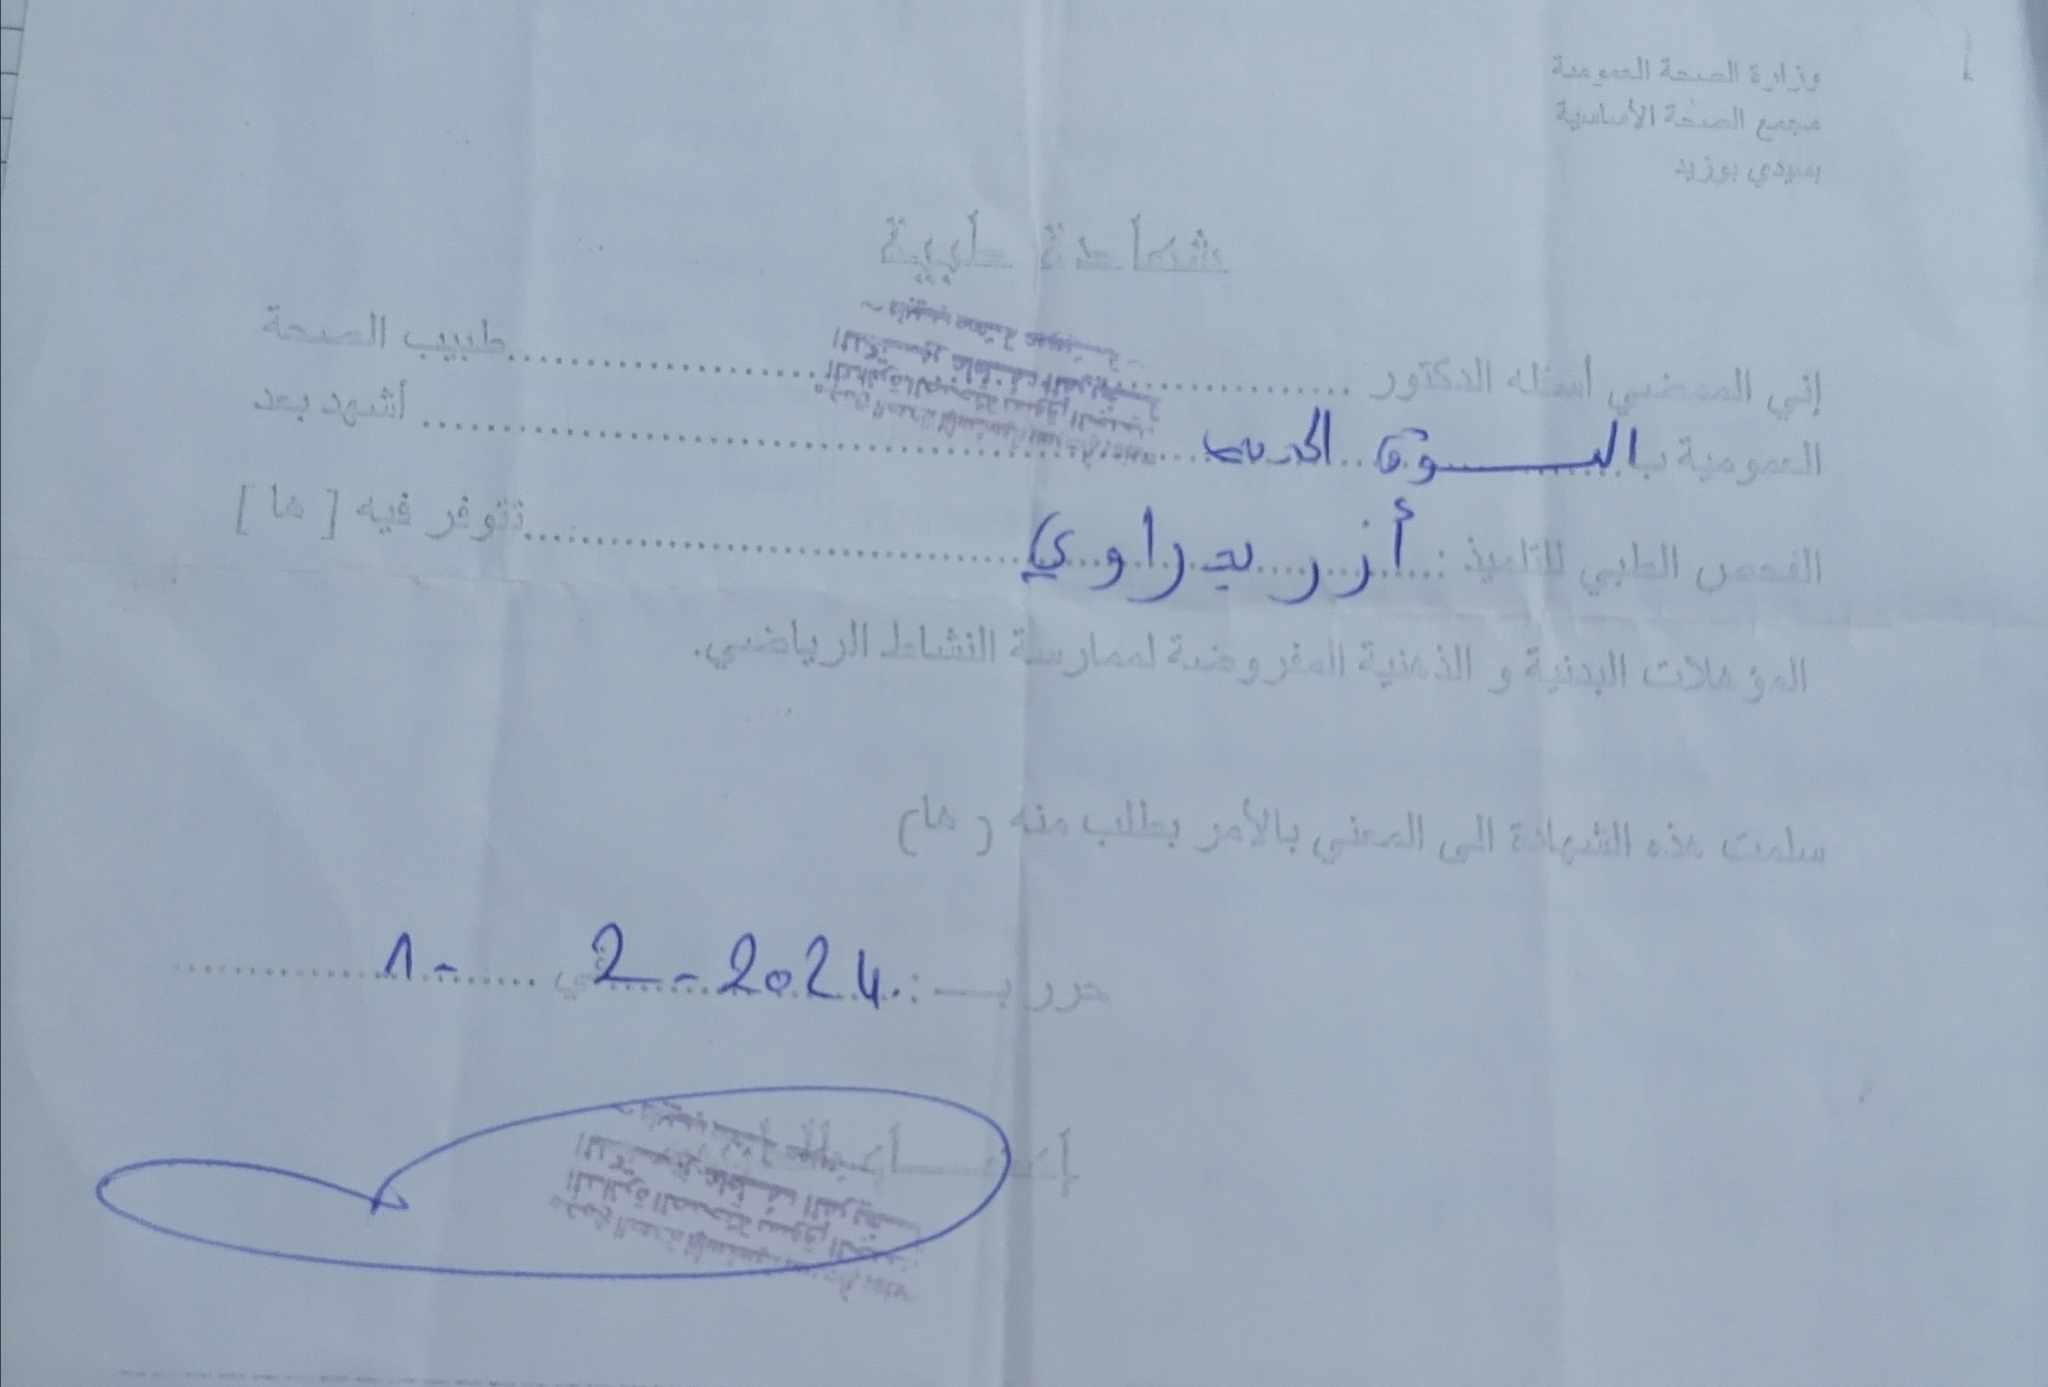 وزارة الصحة العمومية
مجمع الصحة الأساسية
بسيدي بوزيد
شهادة طبية
إني الممضي أسفله الدكتور .................... طبيب الصحة
العمومية بالسوق الجديد .................... أشهد بعد
الفحص الطبي للتلميذ : أزر بحراوي .................... تتوفر فيه [ ها ]
المؤهلات البدنية و الذهنية المفروضة لممارسة النشاط الرياضي.
سلمت هذه الشهادة الى المعني بالأمر بطلب منه ( ها)
حرر بـ : في 1 - 2 - 2024